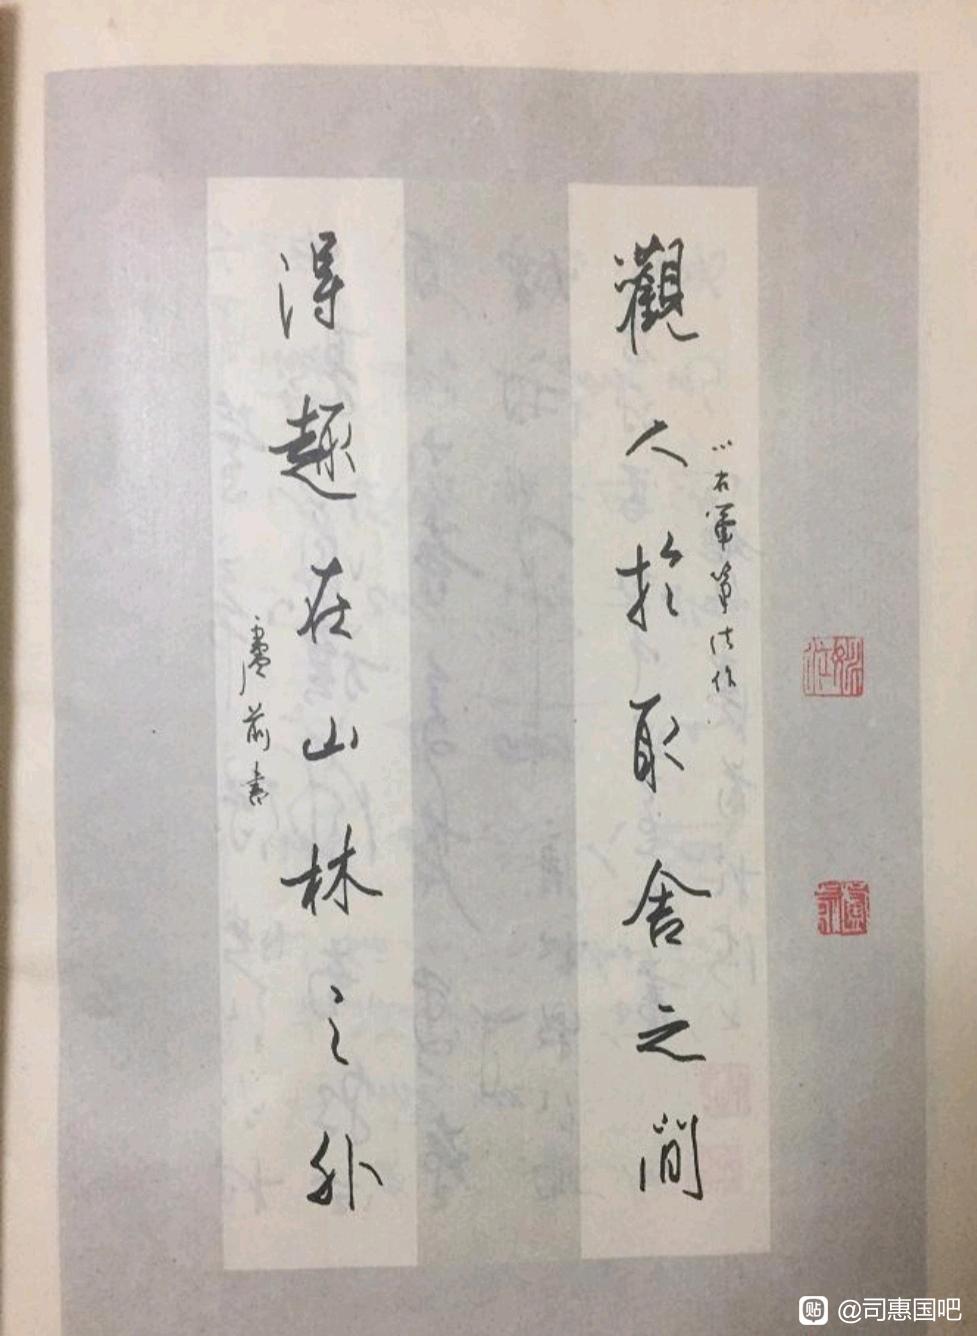 觀人於取舍之間
以右軍筆法作
得趣在山林之外
盧前書
@司惠国吧